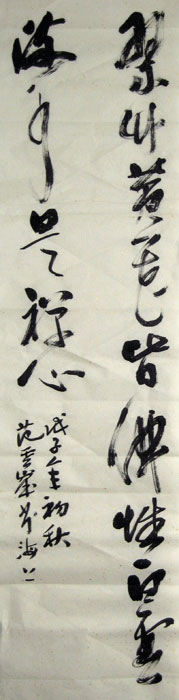 翠竹黄花皆佛性白雲
流水是禪心
戊子年初秋
范雲海上